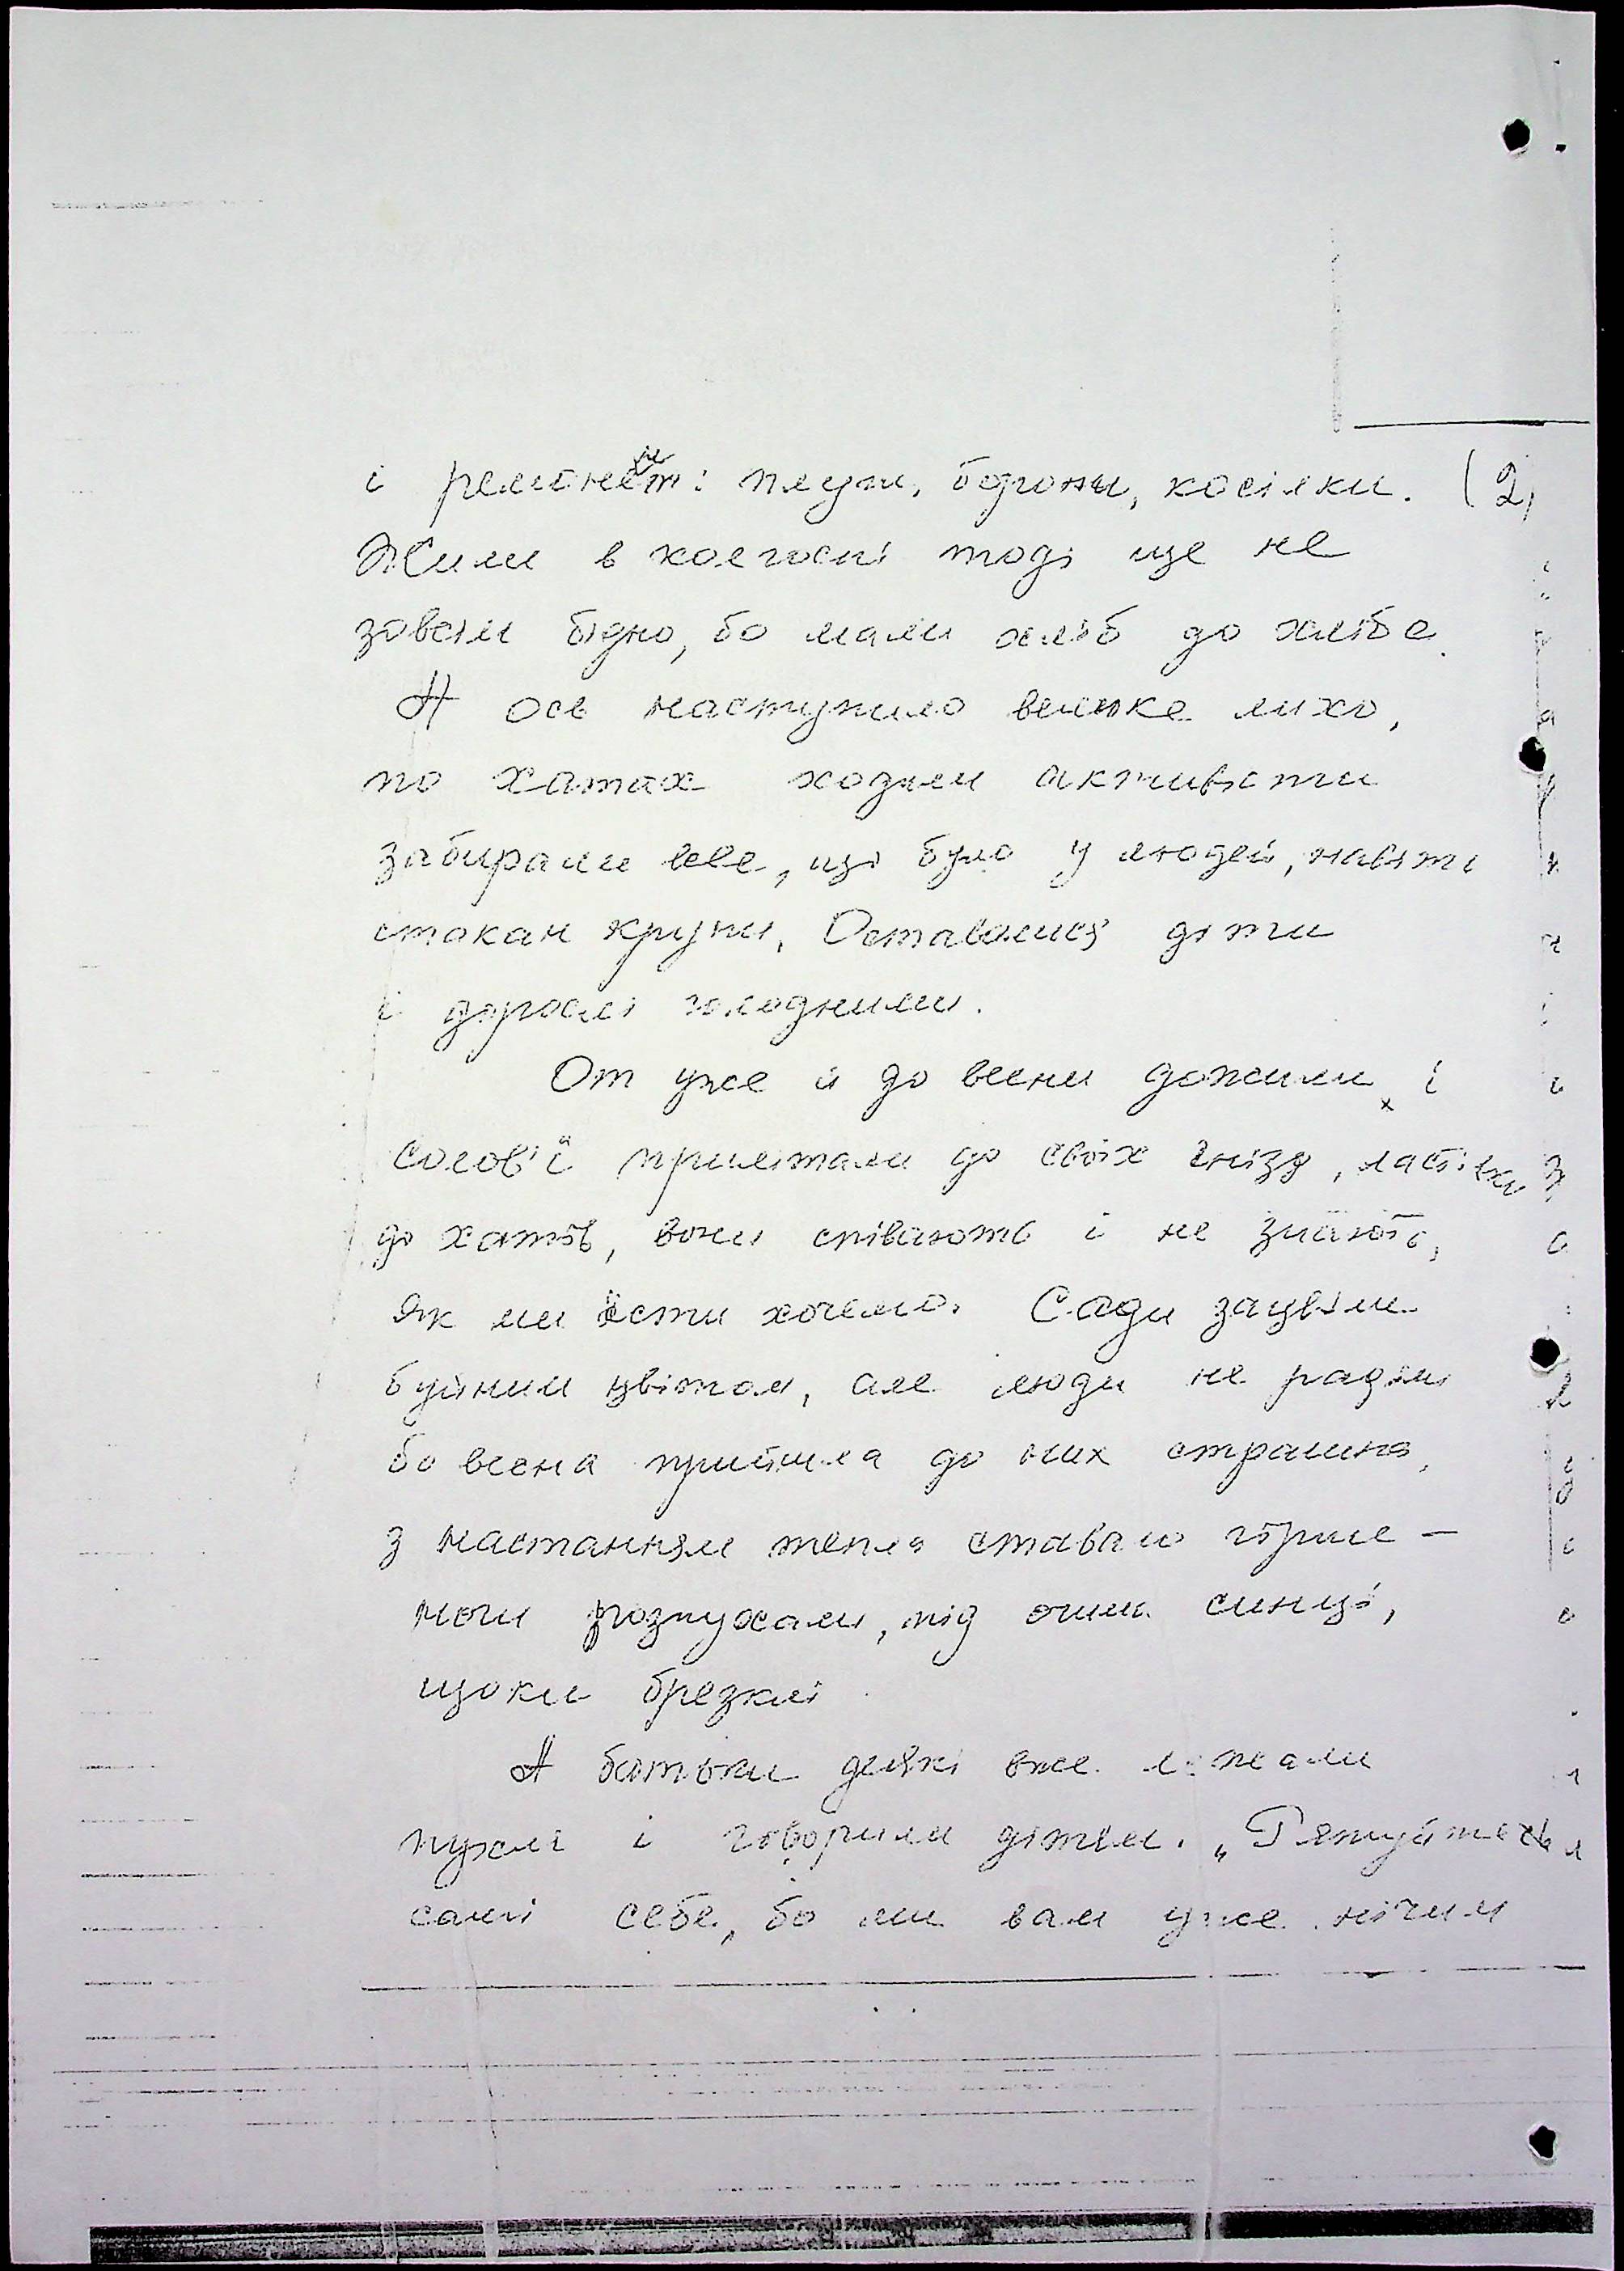 і ремонент: плуги, борони, косілки. (2)
Жили в колгоспі тоді ще не
зовсім бідно, бо мали хліб до хліба.
А ось наступило велике лихо,
по хатах ходили активісти
забирали все, що було у людей, навіть
стакан крупи, Оставалися діти
і дорослі голодними.
От уже й до весни дожили, і
солов'ї прилітали до своїх гнізд, ластівки
до хатів, вони співають і не знають,
як ми їсти хочемо. Сади зацвіли
буйним цвітом, але люди не раділи
бо весна прийшла до них страшна,
з настанням тепла ставало гірше —
ноги розпухали, під очима синці,
щоки брезклі
А батьки деякі вже лежали
пухлі і говорили дітям. „Рятуйтесь
самі себе, бо ми вам уже нічим